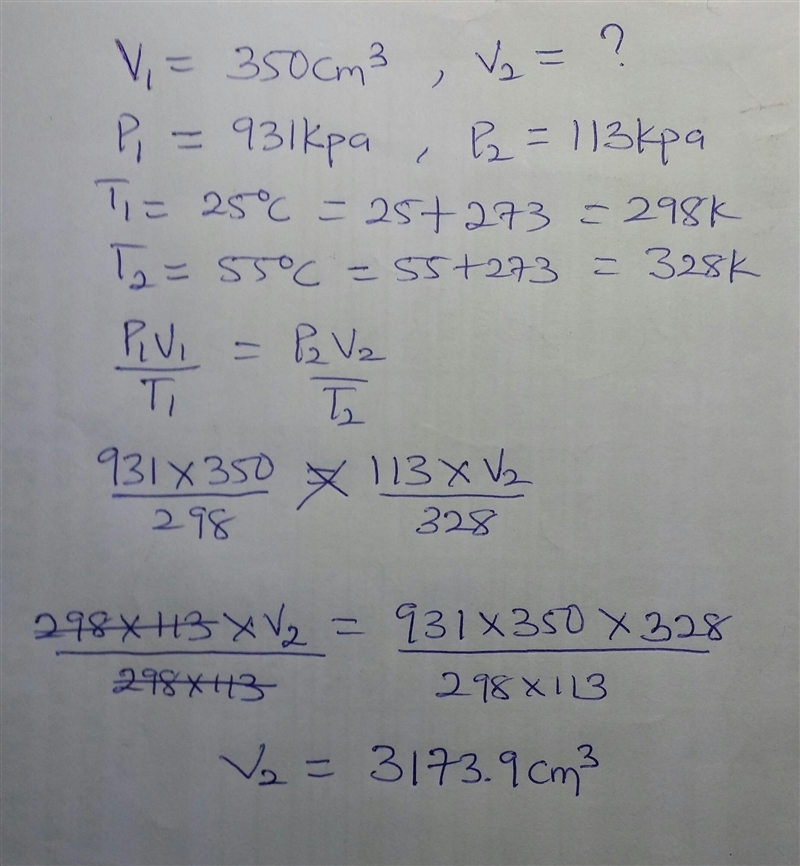 V₁ = 350cm³ , V₂ = ?
P₁ = 931kpa , P₂ = 113kpa
T₁ = 25°C = 25+273 = 298K
T₂ = 55°C = 55+273 = 328K
P₁V₁ = P₂V₂
T₁ T₂
931×350 = 113×V₂
298 328
298×113×V₂ = 931×350×328
298×113 298×113
V₂ = 3173.9cm³